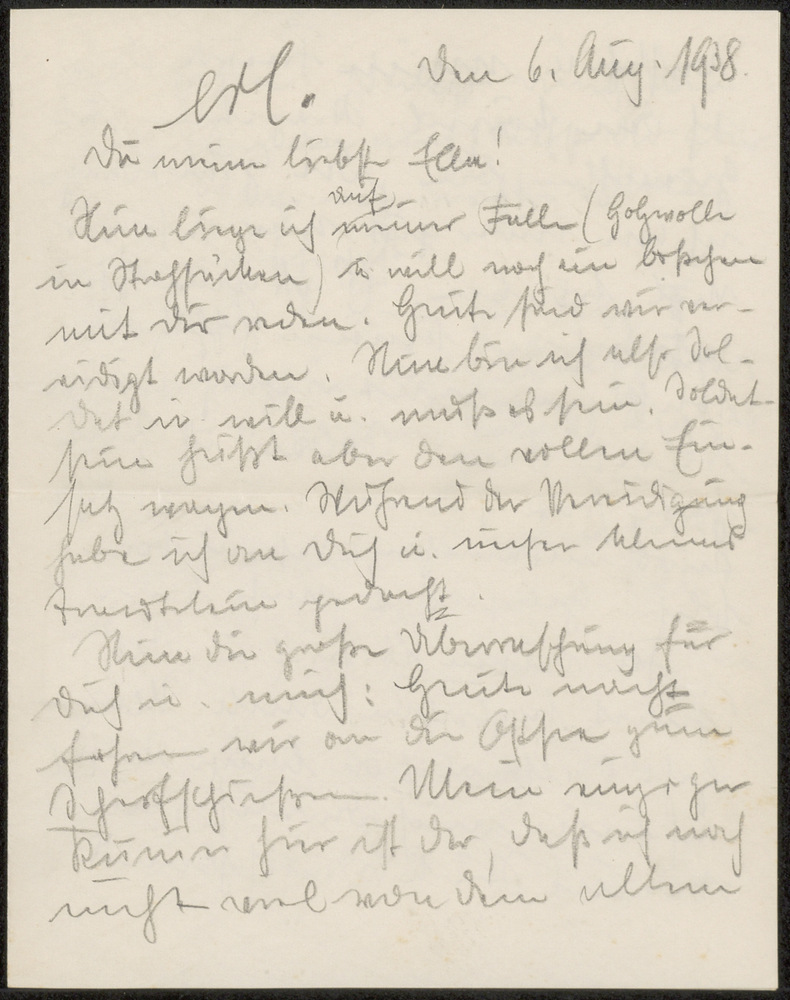 den 6. Aug. 1938.
erl.
Du meine liebste Ella!
Nun liege ich auf meiner Falle (Holzwolle
in Strohsäcken) u. will noch ein bißchen
mit dir reden. Heute sind wir ver-
eidigt worden. Nun bin ich also Sol-
dat u. will u. muß es sein. Soldat-
sein heißt aber den vollen Ein-
satz wagen. Während der Vereidigung
habe ich an Dich u. unser kleines
gedacht.
Nun die große Überraschung für
Dich u. mich: Heute nacht
fahren wir an die Ostsee zum
Scharfschießen. Mein einziger
Kummer hier ist der, daß ich noch
nicht viel von dem allem